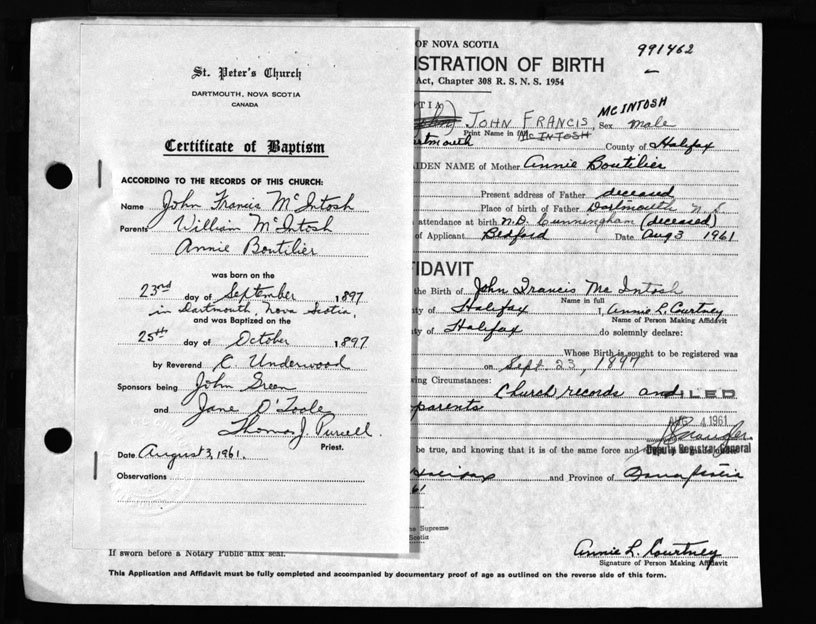 St. Peter's Church
DARTMOUTH, NOVA SCOTIA
CANADA
Certificate of Baptism
ACCORDING TO THE RECORDS OF THIS CHURCH:
Name John Francis McIntosh
Parents William McIntosh
Annie Boutilier
was born on the
23rd day of September 1897
in Dartmouth, Nova Scotia,
and was Baptized on the
25th day of October 1897
by Reverend C. Underwood
Sponsors being John Green
and Jane O'Toole
Thomas J. Purcell.
Priest.
Date August 3, 1961.
Observations
OF NOVA SCOTIA
991462
ISTRATION OF BIRTH
Act, Chapter 308 R. S. N. S. 1954
TIA
JOHN FRANCIS, MCINTOSH Sex male
Print Name in full McINTOSH
artmouth County of Halifax
AIDEN NAME of Mother Annie Boutilier
Present address of Father deceased
Place of birth of Father Dartmouth N.S.
attendance at birth M.D. Cunningham (deceased)
of Applicant Bedford Date Aug 3 1961
FIDAVIT
the Birth of John Francis McIntosh
Name in full
ty of Halifax I, Annie L. Courtney
Name of Person Making Affidavit
ty of Halifax do solemnly declare:
Whose Birth is sought to be registered was
on Sept. 23, 1897
ving Circumstances: Church records and
ILED
parents
AUG 4 1961
be true, and knowing that it is of the same force and
Deputy Registrar General
Halifax and Province of Nova Scotia
61
he Supreme
Scotia
If sworn before a Notary Public affix seal.
Annie L. Courtney
Signature of Person Making Affidavit
This Application and Affidavit must be fully completed and accompanied by documentary proof of age as outlined on the reverse side of this form.